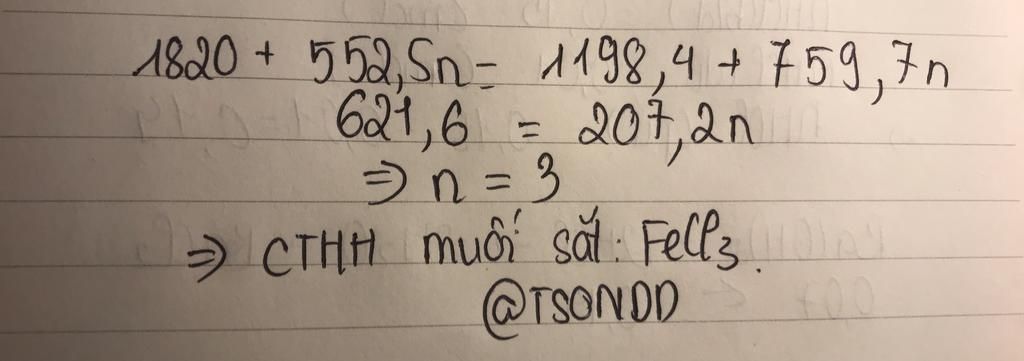 1820 + 552,5n = 1198,4 + 759,7n
621,6 = 207,2n
⇒ n = 3
⇒ CTHH muối sắt: FeCl₃.
@TSONDD